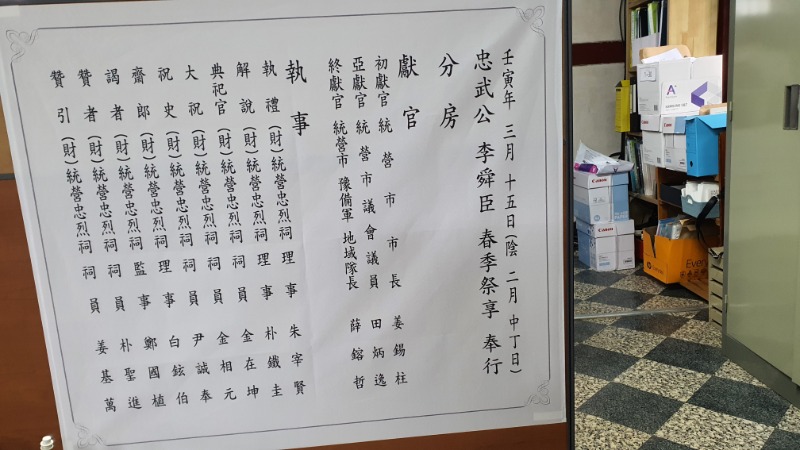 壬寅年 三月 十五日(陰 二月 中丁日)
忠武公 李舜臣 春季祭享 奉行
分房
獻官
初獻官 統營市市長 姜錫柱
亞獻官 統營市議會議員 田炳逸
終獻官 統營市 豫備軍 地域隊長 薛鎔哲
執事
執禮 (財)統營忠烈祠 理事 朱宰賢
解說 (財)統營忠烈祠 理事 朴鐵圭
典祀官 (財)統營忠烈祠 祠員 金在坤
大祝 (財)統營忠烈祠 祠員 金相元
祝史 (財)統營忠烈祠 祠員 尹誠奉
齋郎 (財)統營忠烈祠 理事 白鉉伯
謁者 (財)統營忠烈祠 監事 鄭國植
贊者 (財)統營忠烈祠 祠員 朴聖進
贊引 (財)統營忠烈祠 祠員 姜基萬
Canon
Canon